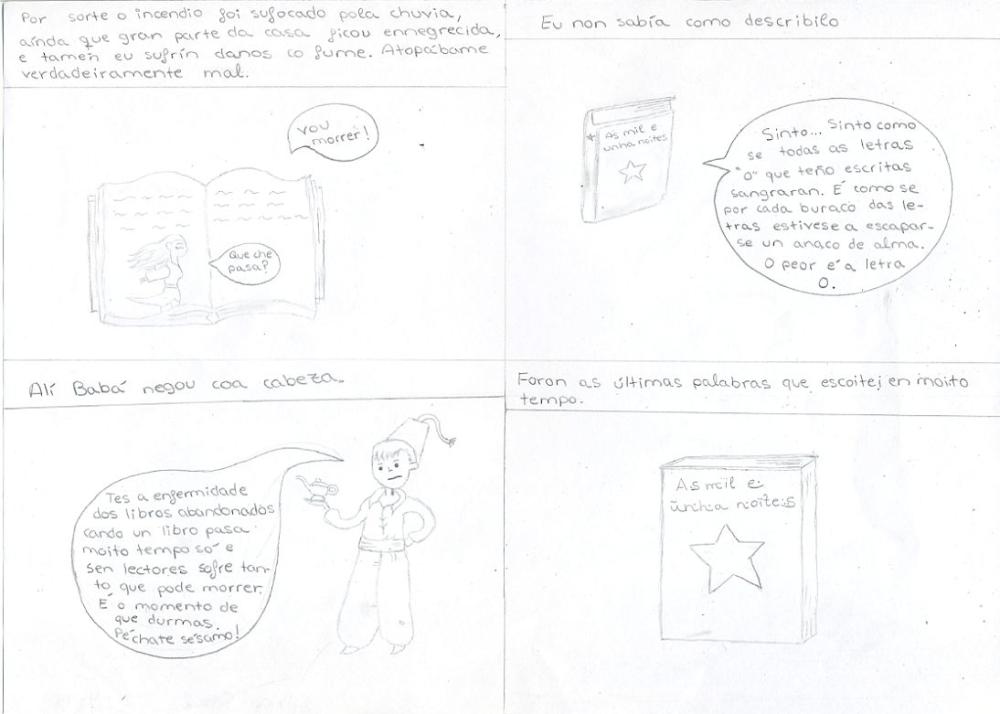 Por sorte o incendio foi sufocado pola chuvia,
aínda que gran parte da casa ficou ennegrecida,
e tamén eu sufrín danos co fume. Atopábame
verdadeiramente mal.
Vou
morrer!
Que che
pasa?
Eu non sabía como describilo
As mil e
unha noites
Sinto... Sinto como
se todas as letras
"o" que teño escritas
sangraran. É como se
por cada buraco das le-
tras estivese a escapar-
se un anaco de alma.
O peor é a letra
O.
Alí Babá negou coa cabeza.
Tes a enfermidade
dos libros abandonados
cando un libro pasa
moito tempo só e
sen lectores sofre tan-
to que pode morrer.
É o momento de
que durmas.
Péchate sésamo!
Foron as últimas palabras que escoitei en moito
tempo.
As mil e
unha noites